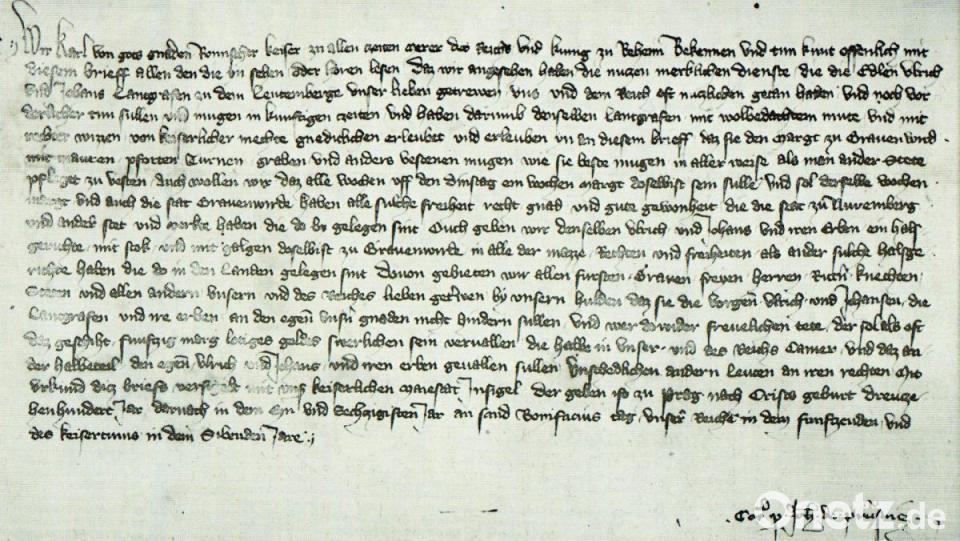 Wir Karl von gots gnaden Romischer keiser zu allen zeiten merer des Reichs vnd kunig zu Beheim Bekennen vnd tun kunt offenlich mit
diesem brieff allen den die in sehen oder horen lesen Daz wir angesehen haben die nuczen merklichen dienste die die Edlen Vlrich
vnd Johans Lantgrafen zu dem Leutemberge vnser lieben getrewen vns vnd dem Reich oft nuczlichen getan haben vnd noch vor
derlicher tun sullen vnd mugen in kunftigen zeiten vnd haben darumb denselben lantgrafen mit wolbedachtem mute vnd mit
rechter wizzen von keiserlicher mechte gnediclichen erleubet vnd erleuben in an diesem brieff daz sie den margt zu Grauenwerd
mit mauren pforten Turnen graben vnd anders vestenen mugen wie sie beste mugen in aller weise als man ander Stete
pfliget zu vesten auch wollen wir daz alle wochen vff den dinstag ein wochen margt doselbist sein sulle vnd sol derselbe wochen
margt vnd auch die stat Grauenwerde haben alle sulche freiheit recht gnad vnd gute gewonheit die die stat zu Nuremberg
vnd ander stet vnd merkte haben die do by gelegen sint Ouch geben wir denselben Vlrich vnd Johans vnd iren Erben ein hals
gerichte mit stok vnd mit galgen doselbist zu Grauenwerde in alle der mazze Rechten vnd freiheiten als ander sulche halsge
richte haben die do in den Landen gelegen sint Douon gebieten wir allen fursten Grauen freyen Herren Rittn Knechten
Steten vnd allen andern vnsern vnd des Reiches lieben getrwen by vnsern hulden daz sie die vorgen Vlrich vnd Johansen die
Lantgrafen vnd ire erben an den egen vnsn gnaden nicht hindern sullen vnd wer dowider freuelichen tete der sol als oft
daz geschiht funfzig marg lotiges goldes swerlichen sein veruallen die halbe in vnser vnd des Reichs Camer vnd daz an
der halbteil den egen Vlrich vnd Johans vnd iren erben geuallen sullen Vnschedlichen andern leuten an iren rechten Mit
vrkund dicz briefs versigelt mit vnsr keiserlichen maiestat Insigel der geben ist zu Prag nach Cristes geburt dreucze
henhundert Jar darnach in dem Ein vnd Sechzigisten Jar an sand Bonifacius tag vnser Reiche in dem funfczenden vnd
des keisertums in dem Sibenden Jare
onetz.de